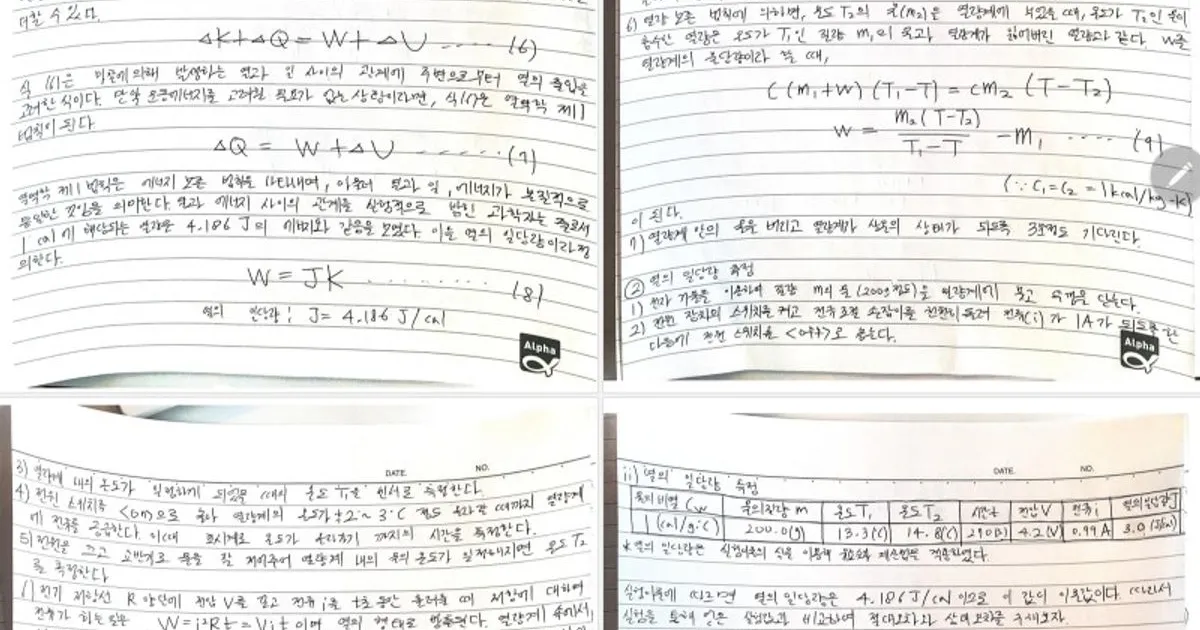 더할 수 있다.
ΔK+ΔQ = W+ΔU ····· (6)
식 (6)은 마찰에 의해 발생하는 열과 일 사이의 관계에 주변으로부터 열의 출입을
고려한 식이다. 만약 운동에너지를 고려할 필요가 없는 상황이라면, 식 은 열역학 제1
법칙이 된다
ΔQ = W+ΔU ----- (7)
열역학 제1법칙은 에너지 보존 법칙을 나타내며, 아울러 열과 일, 에너지가 본질적으로
동일한 것임을 의미한다. 열과 에너지 사이의 관계를 실험적으로 밝힌 과학자는 줄로서
1 cal에 해당되는 열량은 4.186 J의 에너지와 같음을 보였다. 이를 열의 일당량이라 정
의한다.
W = JK ········ (8)
열의 일당량: J= 4.186 J/cal
Alpha
6) 열량 보존 법칙에 의하면, 온도 T₂의 물(m₂)을 열량계에 넣었을 때, 온도가 T₂인 물이
흡수한 열량은 온도가 T₁인 질량 m₁의 물과 열량계가 잃어버린 열량과 같다. W를
열량계의 물당량이라 할 때,
C(m₁+W)(T₁-T) = cm₂(T-T₂)
W = m₂(T-T₂) / T₁-T - m₁ ····· (9)
(∵ C₁=C₂ = 1kcal/kg·K)
이 된다.
7) 열량계 안의 물을 버리고 열량계가 상온의 상태가 되도록 3분정도 기다린다.
② 열의 일당량 측정
1) 전자 저울을 이용하여 질량 m의 물(200g 정도)을 열량계에 붓고 뚜껑을 닫는다.
2) 전원 장치의 스위치를 켜고 전류 조절 손잡이를 천천히 돌려 전류(i)가 1A가 되도록 한
다음에 전원 스위치를 <off>로 놓는다.
Alpha
DATE. NO.
3) 열량계 내의 온도가 일정하게 되었을 때의 온도 T₁을 측정한다.
4) 전원 스위치를 <on>으로 놓아 열량계의 온도가 약 2~3℃ 정도 올라갈 때까지 열량계
에 전류를 공급한다. 이때 초시계로 온도가 올라가기 까지의 시간을 측정한다.
5) 전원을 끄고 고반기로 물을 잘 저어주어 열량계 내의 물의 온도가 일정해지면 온도 T₂
를 측정한다
6) 전기 저항선 R 양단에 전압 V를 걸고 전류 i를 t초 동안 흘려줄 때 저항에 대하여
전류가 하는 일은 W=i²Rt=Vit 이며 열의 형태로 방출된다. 열량계 속에서
DATE. NO.
ii) 열의 일당량 측정
물의 비열 Cw 물의질량 m 온도T₁ 온도T₂ 시간t 전압V 전류i 열의일당량J
1 (cal/g·℃) 200.0(g) 13.3(℃) 14.8(℃) 290(s) 4.2(V) 0.99A 3.0(J/cal)
*열의 일당량은 실험이론의 식을 이용해 적용하였다.
실험이론에 따르면 열의 일당량은 4.186J/cal 이므로 이 값이 이론값이다. 따라서
실험을 통해 얻은 실험값과 비교하여 절대오차와 상대오차를 구해보자.